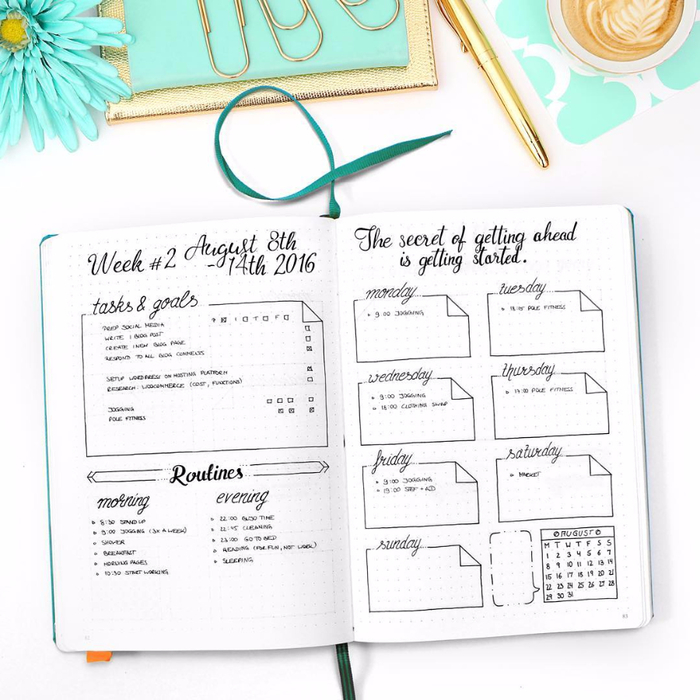 Week #2 August 8th
- 14th 2016
tasks & goals
PREP SOCIAL MEDIA
WRITE 1 BLOG POST
CREATE NEW BLOG PAGE
RESPOND TO ALL BLOG COMMENTS
SETUP WORDPRESS ON HOSTING PLATFORM
RESEARCH: WOOCOMMERCE (COST, FUNCTIONS)
JOGGING
POLE FITNESS
Routines
morning
8:30 STAND UP
9:00 JOGGING (3X A WEEK)
SHOWER
BREAKFAST
MORNING PAGES
10:30 START WORKING
evening
22:00 BUJO TIME
22:45 CLEANING
23:00 GO TO BED
READING (FOR FUN, NOT WORK)
SLEEPING
The secret of getting ahead
is getting started.
monday
9:00 JOGGING
tuesday
POLE FITNESS
wednesday
9:00 JOGGING
18:00 CLOTHING SWAP
thursday
POLE FITNESS
friday
9:00 JOGGING
19:00
saturday
MARKET
sunday
AUGUST
M T W T F S S
1 2 3 4 5 6 7
8 9 10 11 12 13 14
15 16 17 18 19 20 21
22 23 24 25 26 27 28
29 30 31